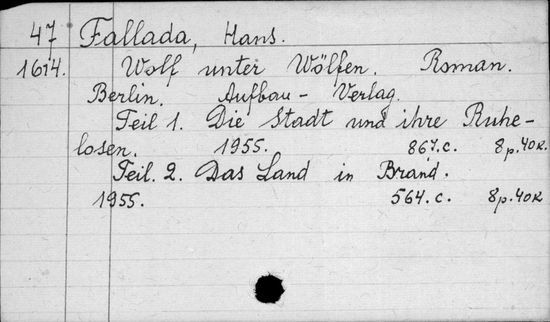 47 Fallada, Hans.
1614. Wolf unter Wölfen. Roman.
Berlin. Aufbau-Verlag.
Teil 1. Die Stadt und ihre Ruhe-
losen. 1955. 867.c. 8p.40к.
Teil. 2. Das Land in Brand.
1955. 564.c. 8p.40к